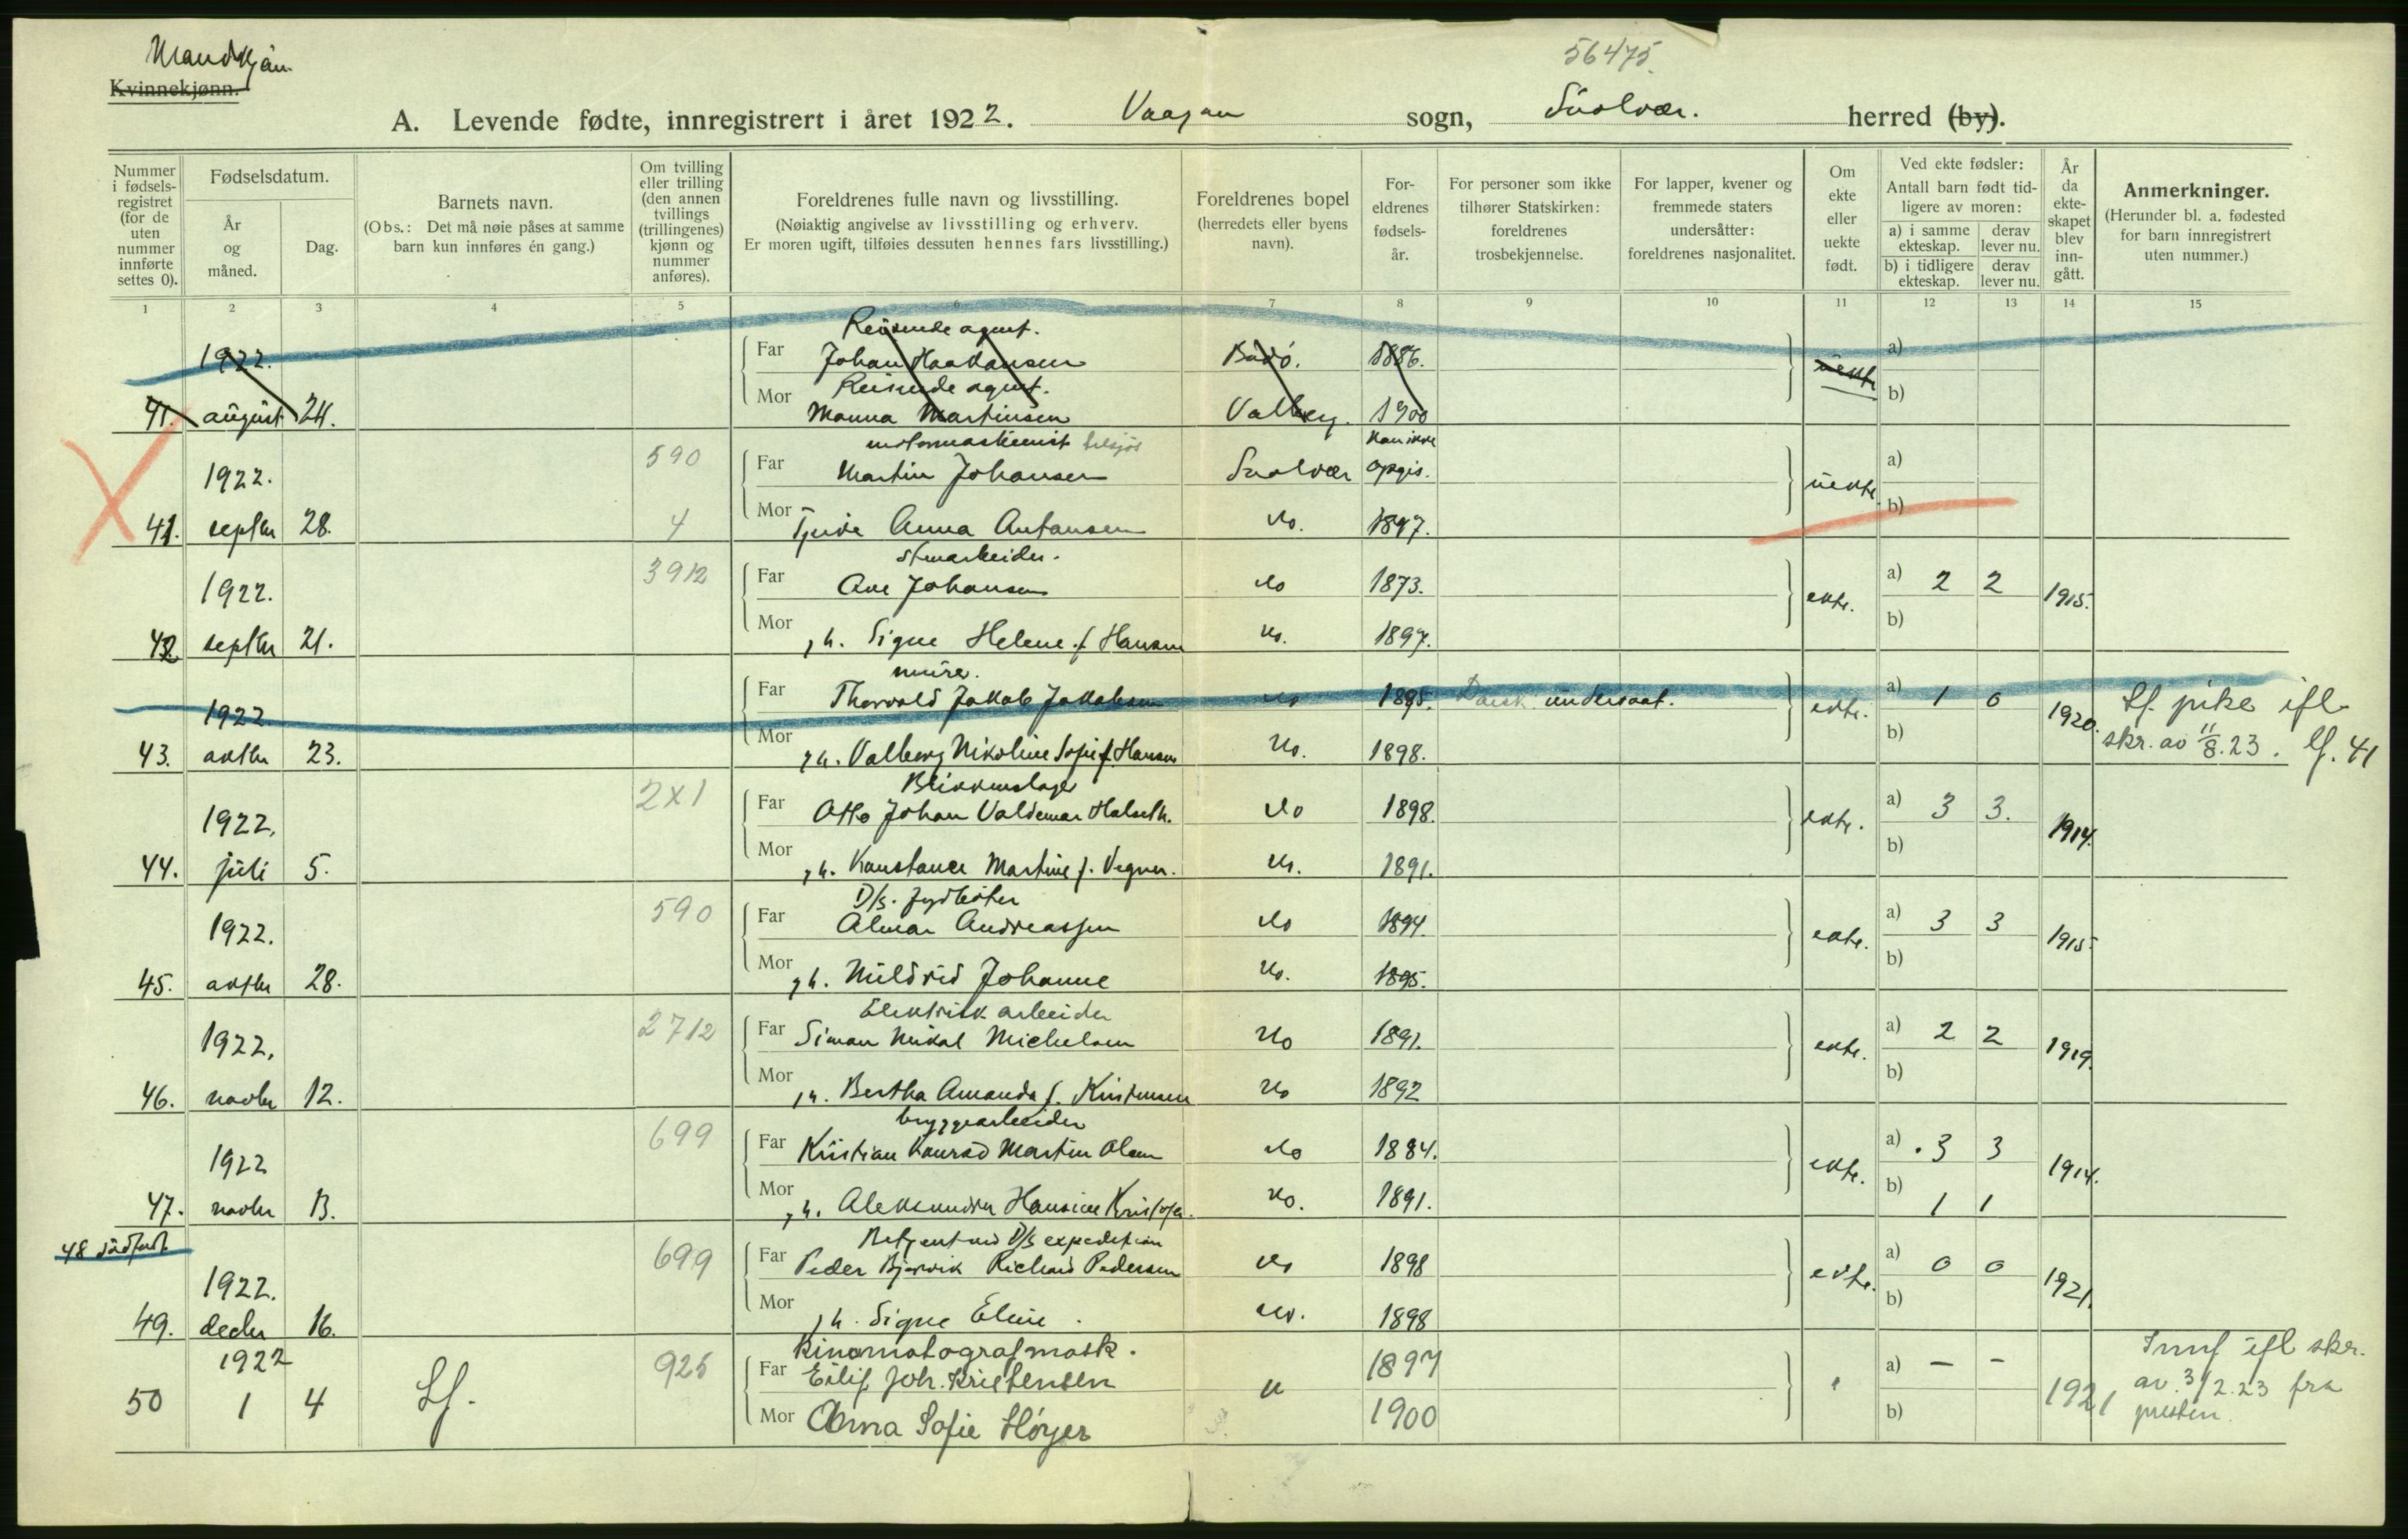 Mandkjøn.
Kvinnekjønn.
56475.
A. Levende fødte, innregistrert i året 1922. Vaagan sogn, Svolvær. herred (by).
Nummer i fødsels-registret (for de uten nummer innførte settes 0).
Fødselsdatum.
År og måned.
Dag.
Barnets navn.
(Obs.: Det må nøie påses at samme barn kun innføres én gang.)
Om tvilling eller trilling (den annen tvillings (trillingenes) kjønn og nummer anføres).
Foreldrenes fulle navn og livsstilling.
(Nøiaktig angivelse av livsstilling og erhverv.
Er moren ugift, tilføies dessuten hennes fars livsstilling.)
Foreldrenes bopel (herredets eller byens navn).
For-eldrenes fødsels-år.
For personer som ikke tilhører Statskirken: foreldrenes trosbekjennelse.
For lapper, kvener og fremmede staters undersåtter: foreldrenes nasjonalitet.
Om ekte eller uekte født.
Ved ekte fødsler:
Antall barn født tid-ligere av moren:
a) i samme ekteskap. derav lever nu.
b) i tidligere ekteskap. derav lever nu.
År da ekte-skapet blev inn-gått.
Anmerkninger.
(Herunder bl. a. fødested for barn innregistrert uten nummer.)
1 2 3 4 5 6 7 8 9 10 11 12 13 14 15
Reisende agent.
1922. Far Johan Haakansen Bodø. 1886. uekte a)
Reisende agent.
41. august 24. Mor Manna Martinsen Valberg. 1900 b)
motormaskinist tilsjøs Kan ikke
1922. 590 Far Martin Johansen Svolvær opgis. uekte a)
41. septbr 28. 4 Mor Tjene Anna Antonsen do. 1897. b)
stenarbeider.
1922. 3912 Far Ove Johansen do 1873. ekte. a) 2 2 1915.
42 septbr 21. Mor h. Signe Helene f. Hansen do. 1897. b)
murer.
1922 Far Thorvald Jakob Jakobsen do 1895. Dansk undersaat. ekte. a) 1 0 1920. Lf. pike ifl.
43. oktbr 23. Mor h. Valborg Nikoline Sofie f. Hansen do. 1898. b) skr. av 11/8.23. lf. 41
Blikkenslager
1922. 2x1 Far Otto Johan Valdemar Halseth. do 1898. ekte. a) 3 3. 1914.
44. juli 5. Mor h. Konstance Martine f. Vegner. do. 1891. b)
D/s. fyrbøter
1922. 590 Far Almar Andreassen do 1894. ekte. a) 3 3 1915.
45. oktbr 28. Mor h. Mildrid Johanne do. 1895. b)
Elektrisk arbeider
1922. 2712 Far Simon Mikal Michelsen do 1891. ekte. a) 2 2 1919.
46. novbr 12. Mor h. Bertha Amanda f. Kristensen do 1892 b)
bryggearbeider
1922 699 Far Kristian Konrad Martin Olsen do 1884. ekte. a) 3 3 1914.
47. novbr 13. Mor h. Aleksandra Hansine do. 1891. b) 1 1
48 dødfødt.
Betjent ved D/s expedition
1922. 699 Far Peder Bjervik Richard Pedersen do 1898 ekte. a) 0 0 1921.
49. decbr 16. Mor h. Signe Eline. do. 1898 b)
Kinomatografmask.
1922 925 Far Eilif Joh. Kristensen 1897 a) – – Innf ifl skr.
50 1 4 Lf. Mor Anna Sofie Høyer 1900 b) 1921 av. 3/2.23 fra presten.